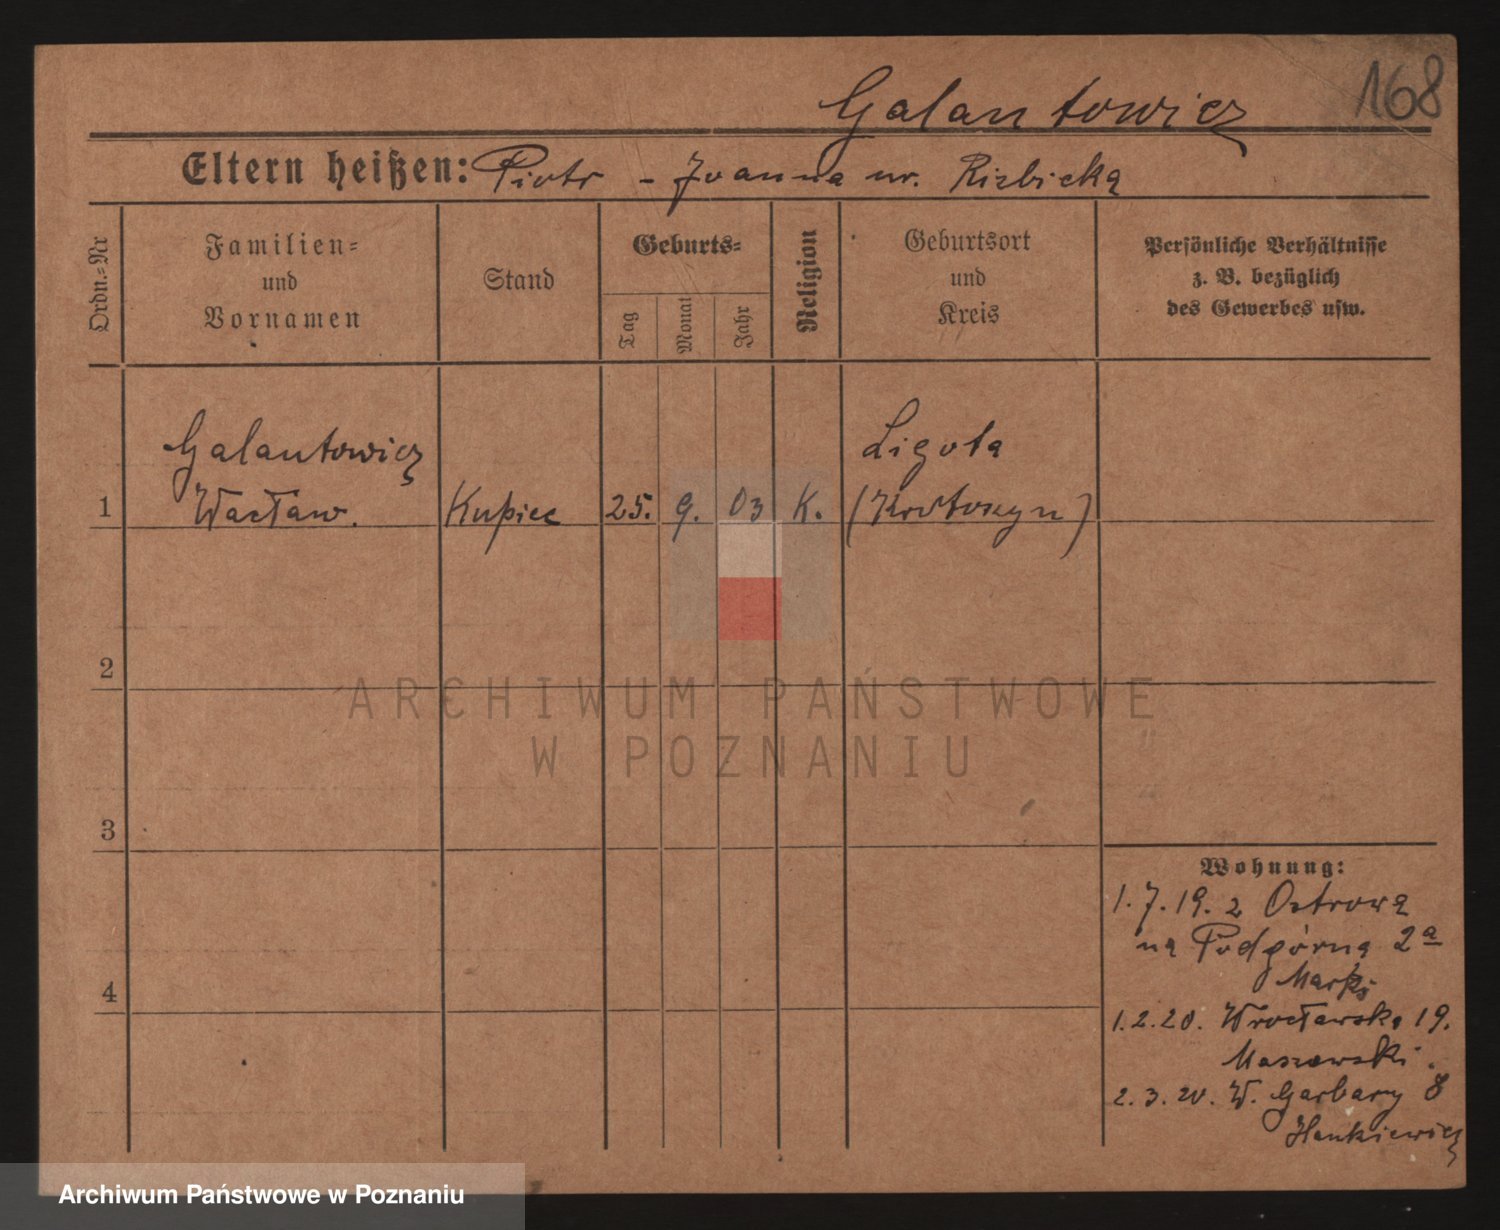 168
Galantowicz
Eltern heißen: Piotr - Joanna ur. Rizbicka
Ordn.=Nr
Familien=
und
Vornamen
Stand
Geburts=
Tag
Monat
Jahr
Religion
Geburtsort
und
Kreis
Persönliche Verhältnisse
z. B. bezüglich
des Gewerbes usw.
Galantowicz
Ligota
1 Wacław. Kupiec 25. 9. 03 K. (Krotoszyn)
2
ARCHIWUM PAŃSTWOWE
W POZNANIU
3
Wohnung:
1.7.19. z Ostrowa
na Podgórną 2a
4
1.2.20. Wrocławska 19.
Maszewski.
2.3.20. W. Garbary 8
Henkiewicz
Archiwum Państwowe w Poznaniu